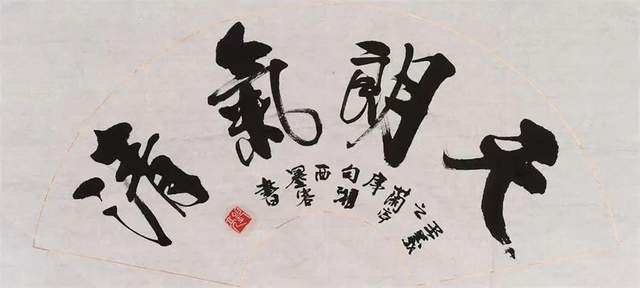 天朗氣清
王羲之蘭亭序句湖西墨客書